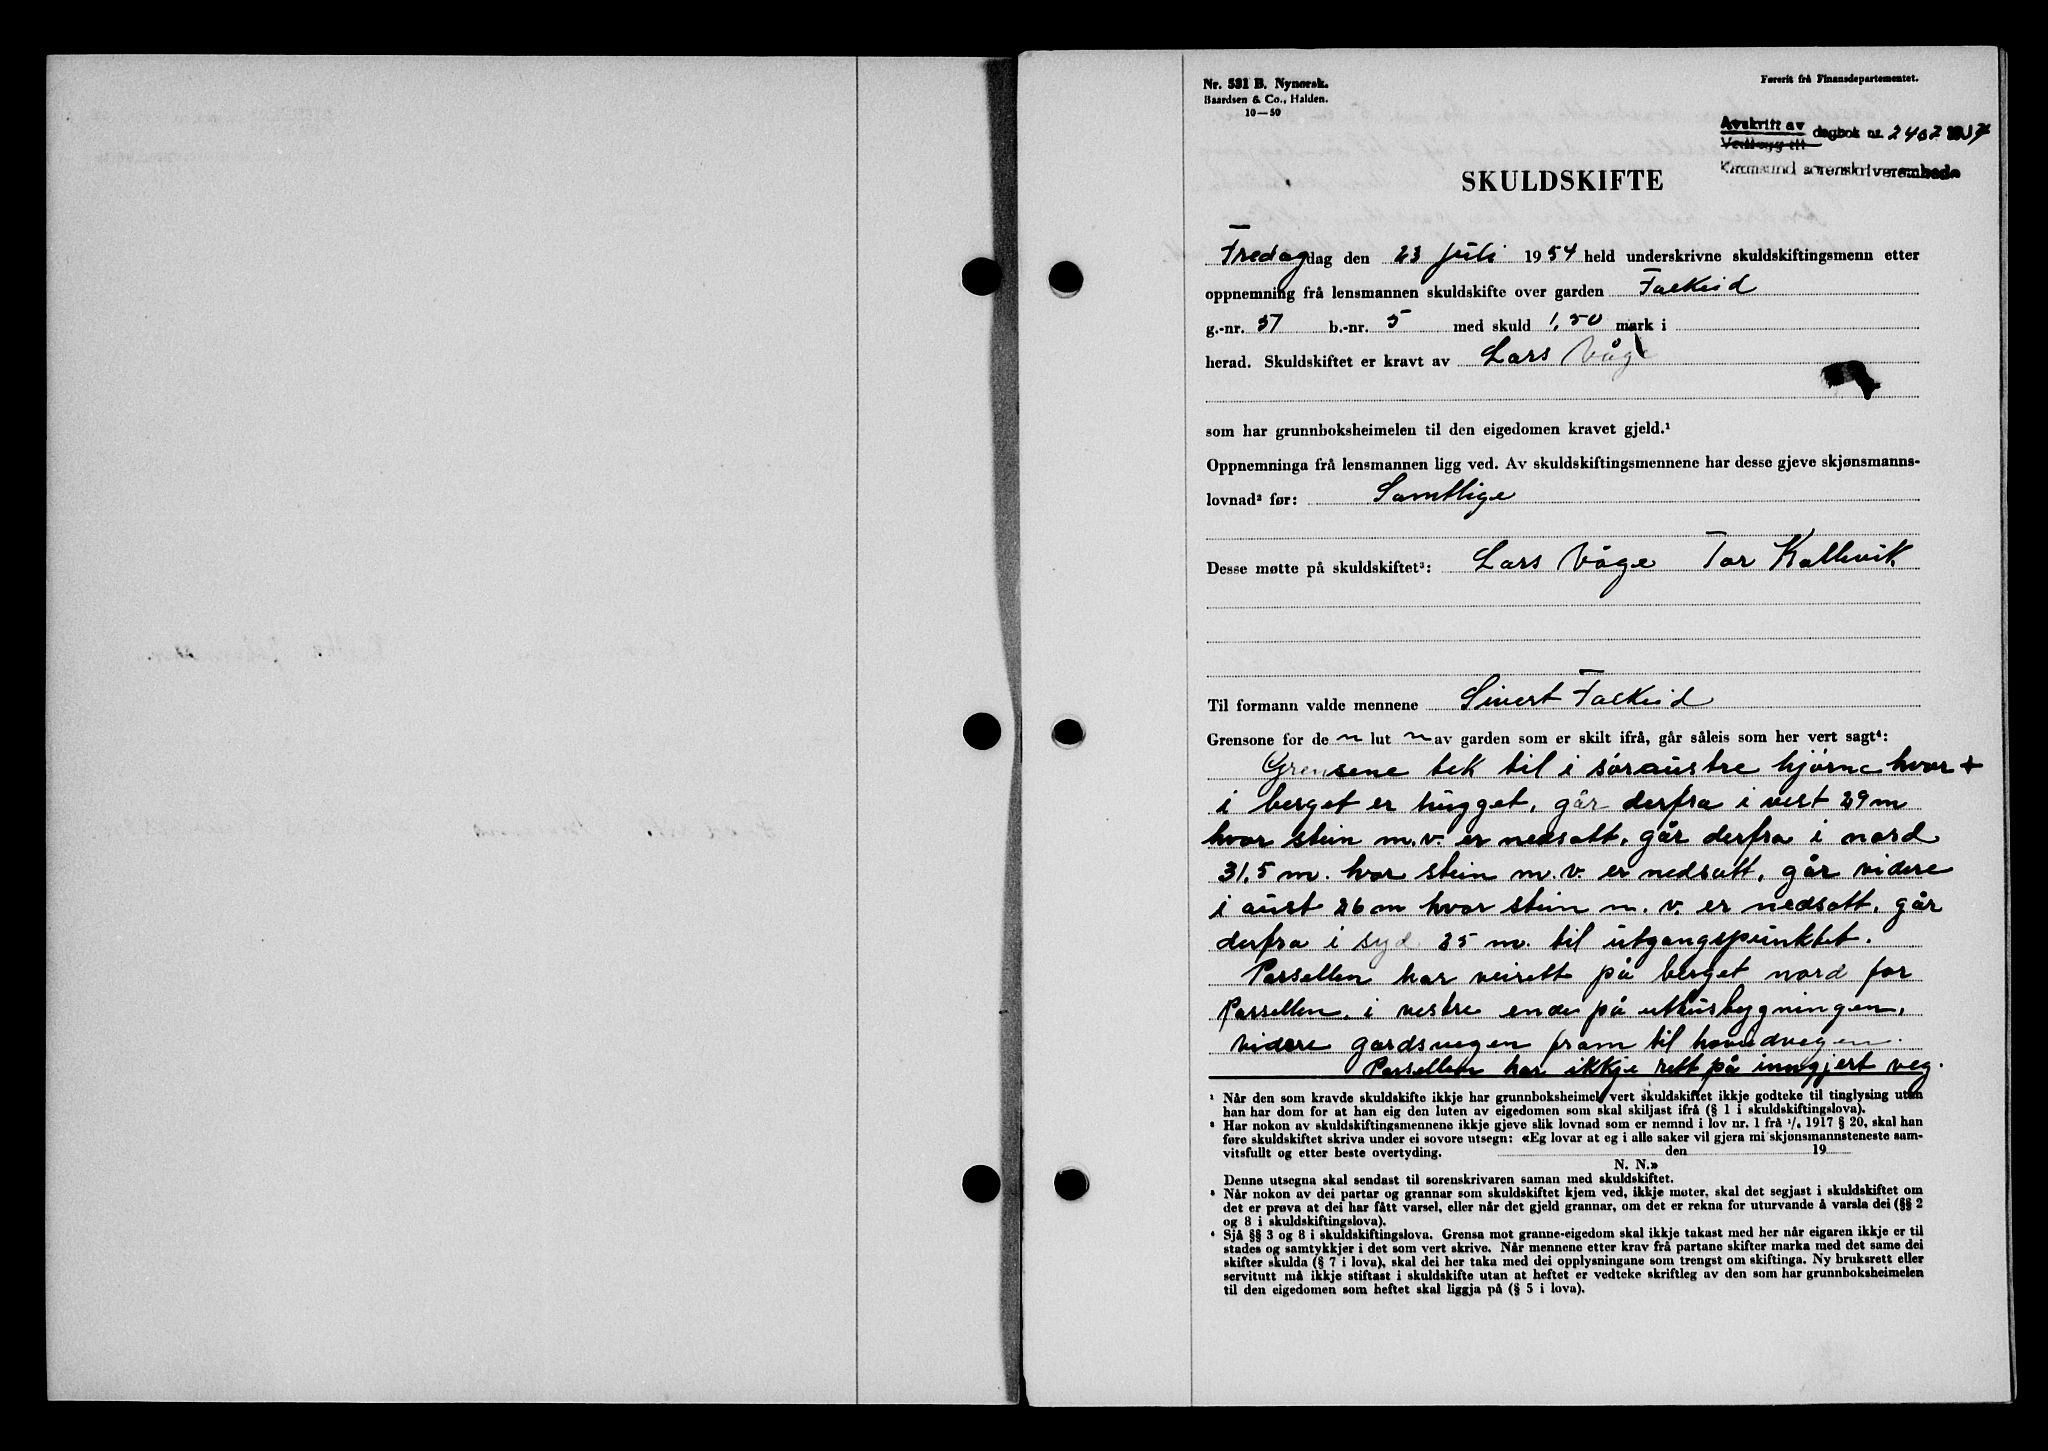 Nr. 531 B. Nynorsk.
Baardsen & Co., Halden.
10—50
Førerit frå Finansdepartementet.
Avskrift av
Vedlegg til
dagbok nr. 2407
Karmsund sorenskriverembede
SKULDSKIFTE
Fredag dag den 23 juli 1954 held underskrivne skuldskiftingsmenn etter
oppnemning frå lensmannen skuldskifte over garden Falkeid
g.-nr. 57 b.-nr. 5 med skuld 1,50 mark i
herad. Skuldskiftet er kravt av Lars Våge
som har grunnboksheimelen til den eigedomen kravet gjeld.¹
Oppnemninga frå lensmannen ligg ved. Av skuldskiftingsmennene har desse gjeve skjønsmanns-
lovnad² før: Samtlige
Desse møtte på skuldskiftet³: Lars Våge Tor Kallevik
Til formann valde mennene Sivert Falkeid
Grensone for de n lut n av garden som er skilt ifrå, går såleis som her vert sagt⁴:
Grensene tek til i søraustre hjørne hvor +
i berget er hugget, går derfra i vest 29 m
hvor stein m.v. er nedsatt, går derfra i nord
31,5 m. hvor stein m.v. er nedsatt, går videre
i aust 26 m hvor stein m.v. er nedsatt, går
derfra i syd 35 m. til utgangspunktet.
Parsellen har veirett på berget nord for
Parsellen, i vestre ende på uthusbygningen,
videre gardsvegen fram til hovedvegen.
Parsellen har ikkje rett på inngjert veg.
¹ Når den som kravde skuldskifte ikkje har grunnboksheimel vert skuldskiftet ikkje godteke til tinglysing utan
han har dom for at han eig den luten av eigedomen som skal skiljast ifrå (§ 1 i skuldskiftingslova).
² Har nokon av skuldskiftingsmennene ikkje gjeve slik lovnad som er nemnd i lov nr. 1 frå ¹/₆ 1917 § 20, skal han
føre skuldskiftet skriva under ei sovore utsegn: «Eg lovar at eg i alle saker vil gjera mi skjønsmannsteneste sam-
vitsfullt og etter beste overtyding. den 19
N. N.»
Denne utsegna skal sendast til sorenskrivaren saman med skuldskiftet.
³ Når nokon av dei partar og grannar som skuldskiftet kjem ved, ikkje møter, skal det segjast i skuldskiftet om
det er prøva at dei har fått varsel, eller når det gjeld grannar, om det er rekna for uturvande å varsla dei (§§ 2
og 8 i skuldskiftingslova).
⁴ Sjå §§ 3 og 8 i skuldskiftingslova. Grensa mot granne-eigedom skal ikkje takast med her når eigaren ikkje er til
stades og samtykkjer i det som vert skrive. Når mennene etter krav frå partane skifter marka med det same dei
skifter skulda (§ 7 i lova), skal dei her taka med dei opplysningane som trengst om skiftinga. Ny bruksrett eller
servitutt må ikkje stiftast i skuldskifte utan at heftet er vedteke skriftleg av den som har grunnboksheimelen
til den eigedomen som heftet skal liggja på (§ 5 i lova).